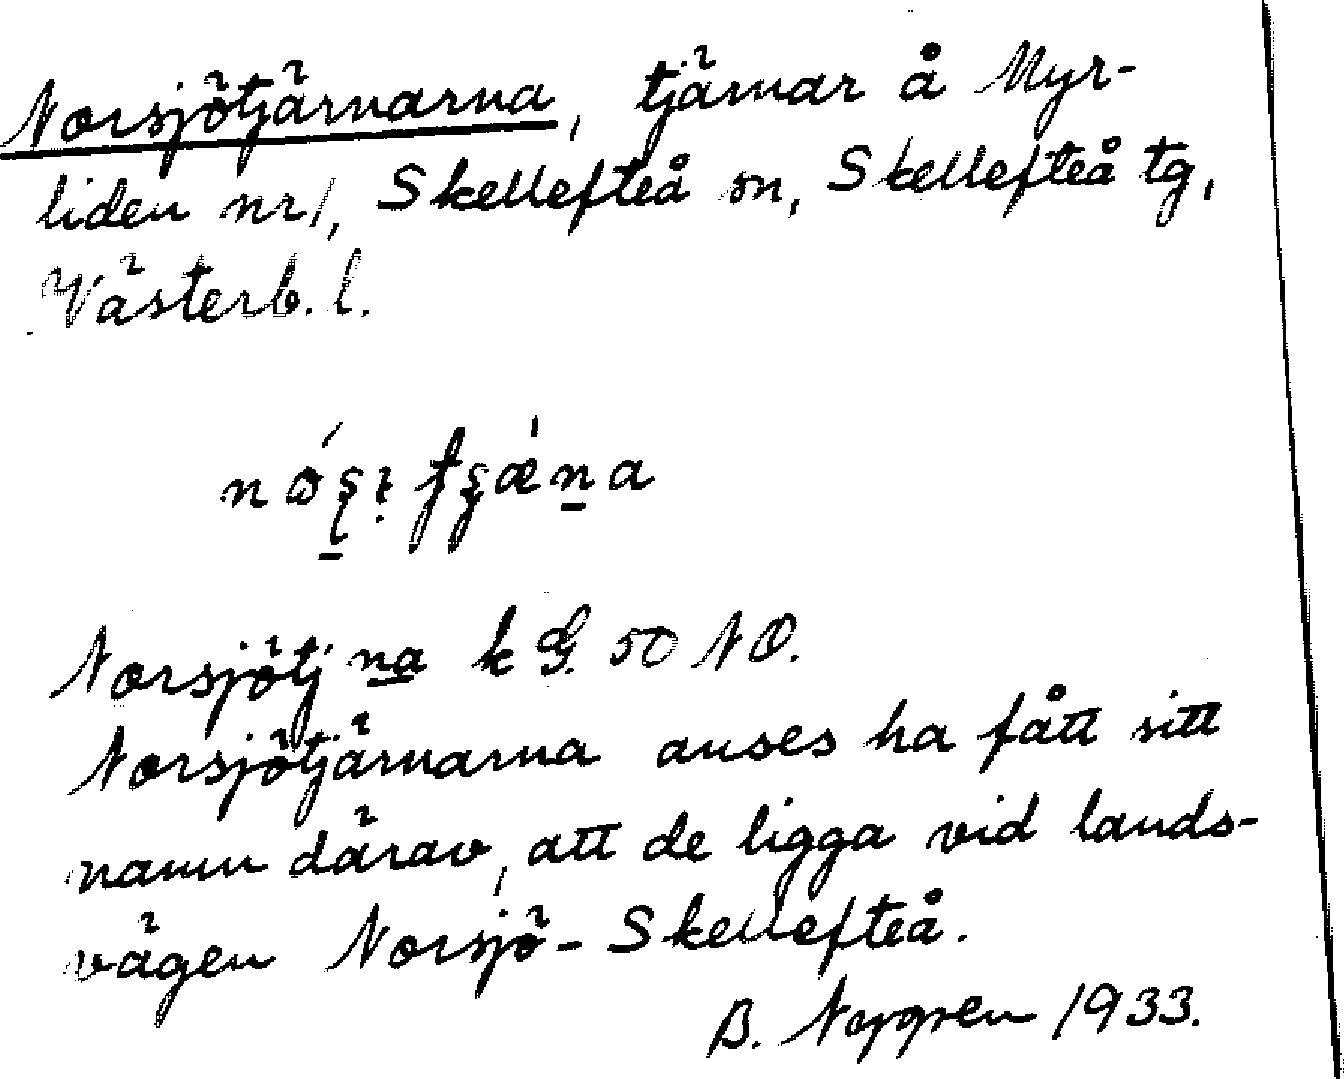 Norsjötjärnarna, tjärnar å Myr-
liden nr 1, Skellefteå sn, Skellefteå tg,
Västerb. l.
Norsjötjna k G. 50 NO.
Norsjötjärnarna anses ha fått sitt
namn därav, att de ligga vid lands-
vägen Norsjö - Skellefteå.
B. Nygren 1933.